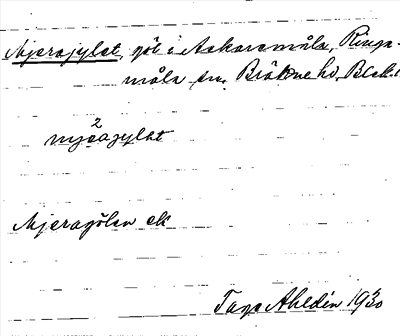 Njerajylet, göl i Askaremåla, Ringa-
måla sn, Bräkne hd, Blek.
2
njerajylet
Njeragölen ek
Tage Ahldén 1930